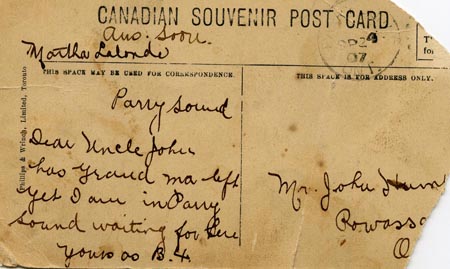 CANADIAN SOUVENIR POST CARD
Ans: Soon.
Martha Lalonde
THIS SPACE MAY BE USED FOR CORRESPONDENCE.
THIS SPACE IS FOR ADDRESS ONLY.
(Phillips & Wrinch, Limited, Toronto
Parry Sound
Dear Uncle John
has Grand ma left
yet I am in Parry
sound waiting for here
yours as B. 4
Mr. John
Rowass
O
07